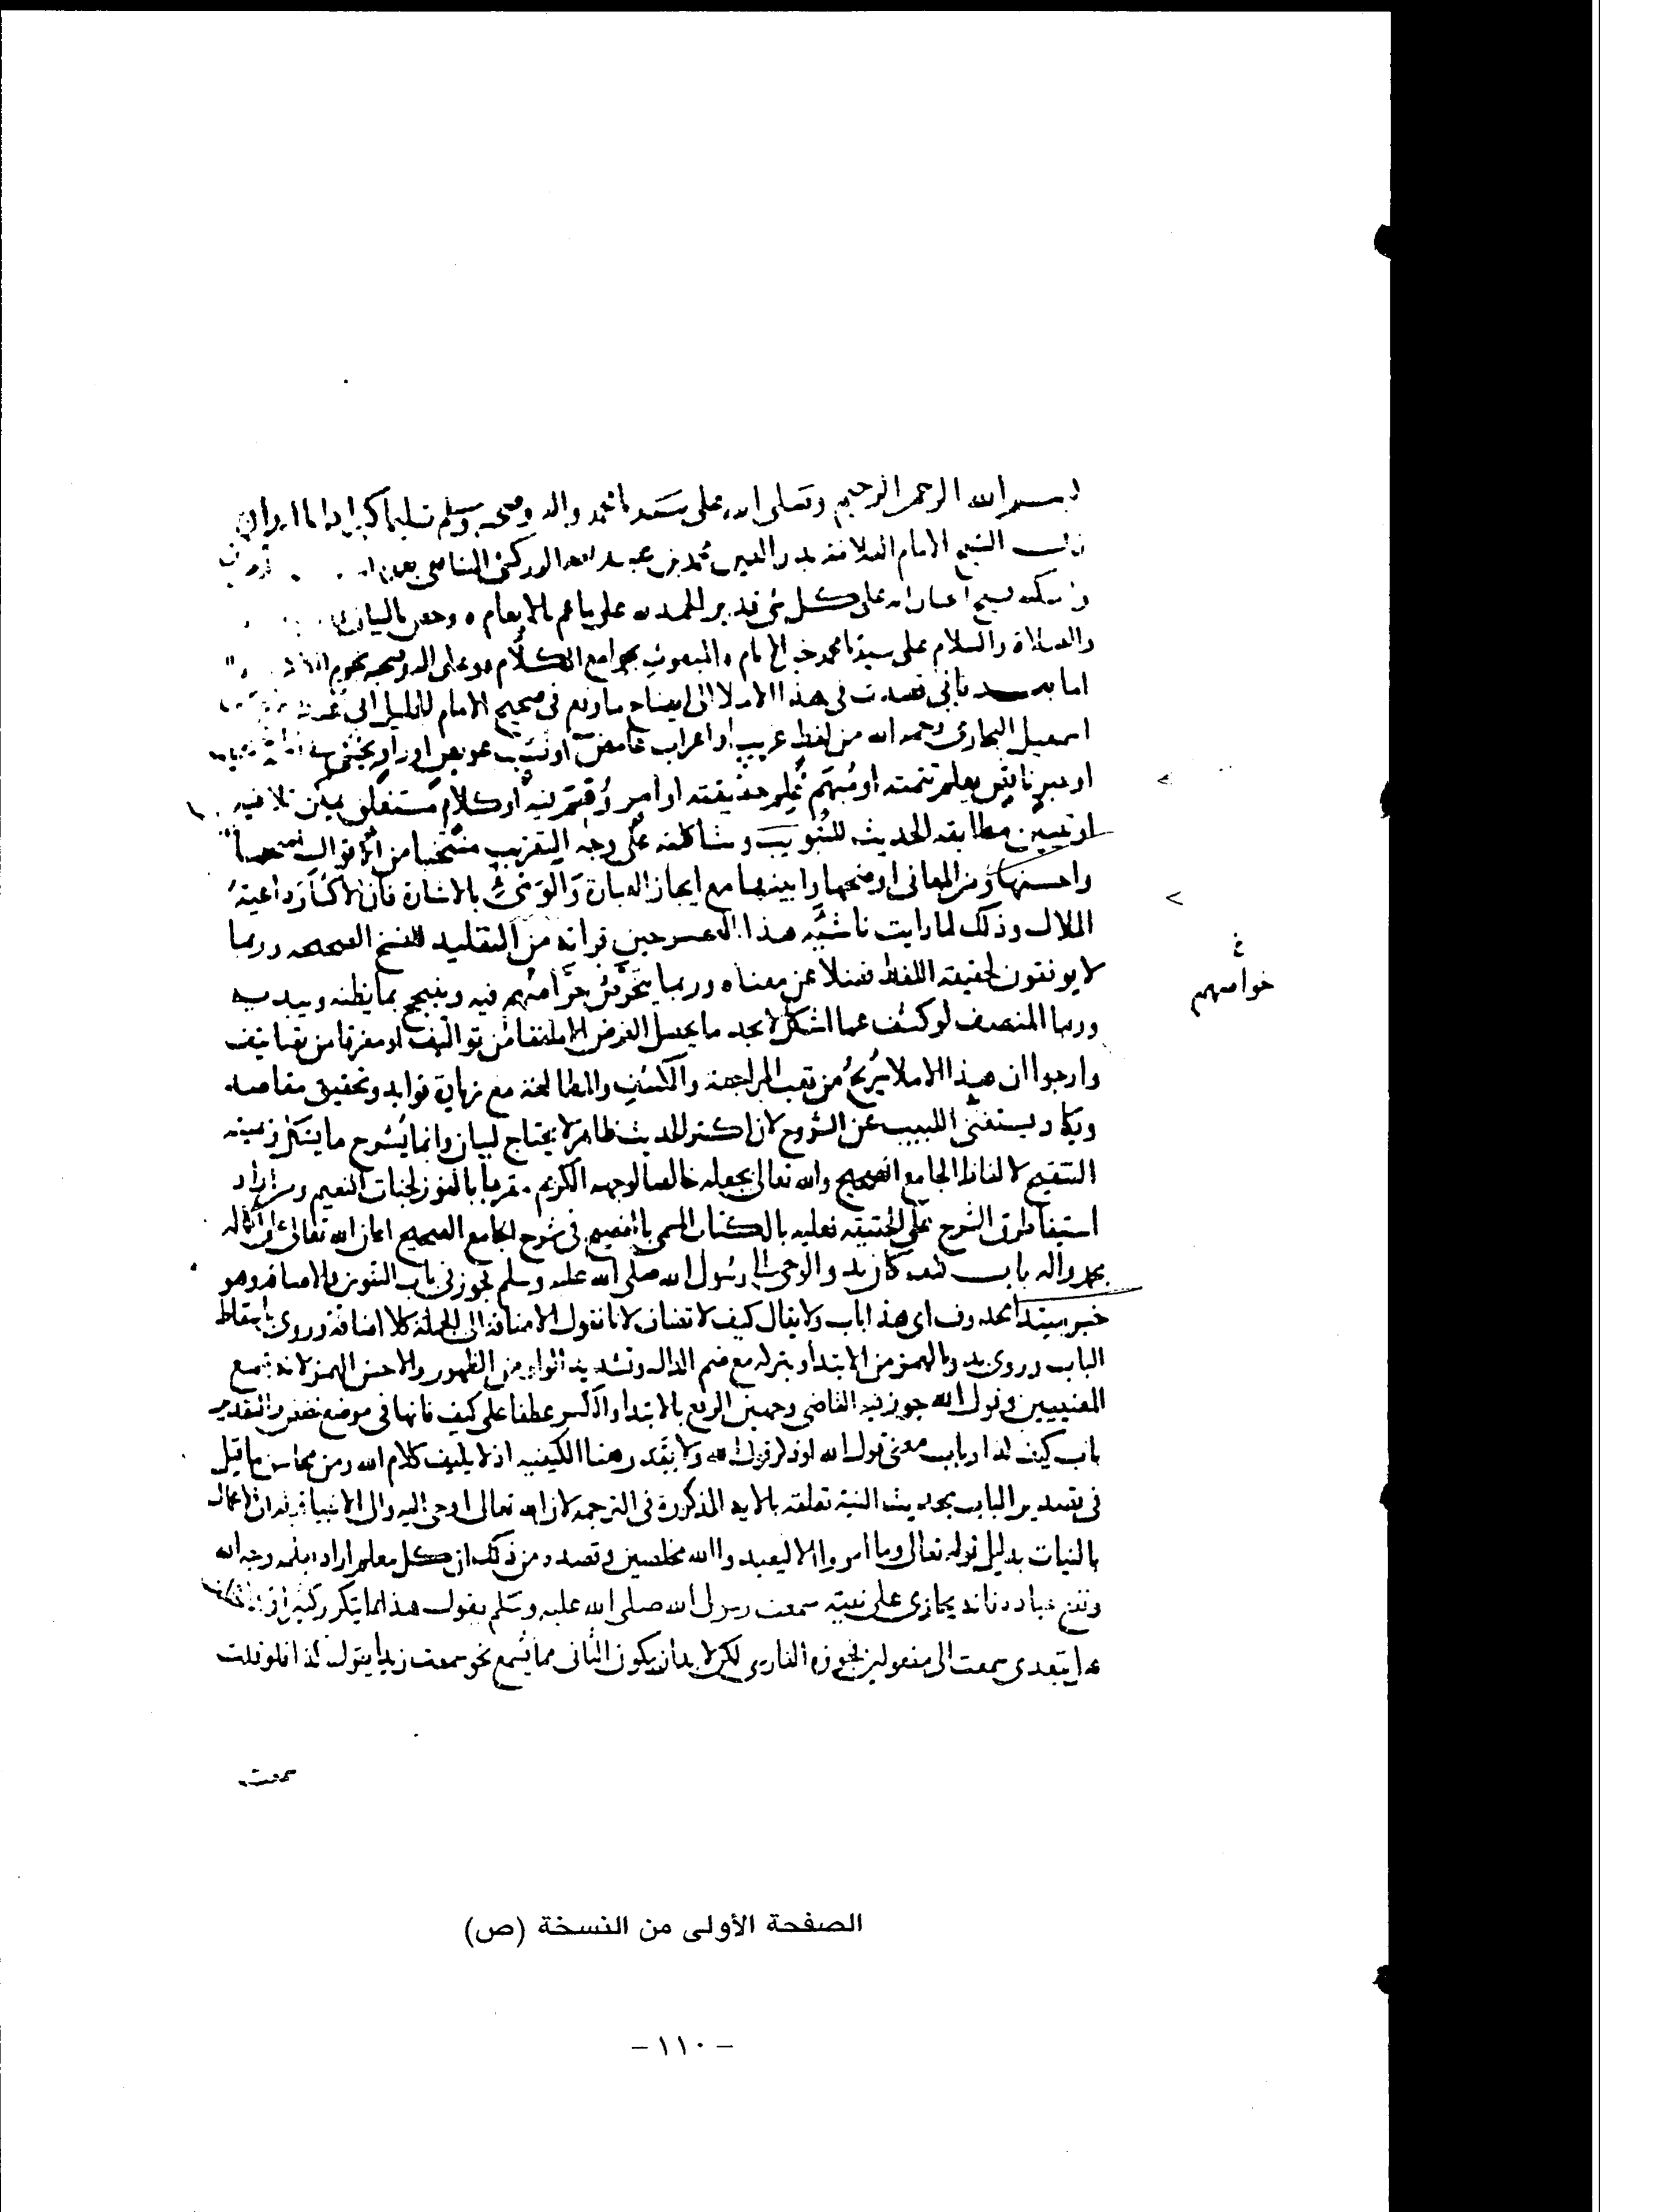 بسم الله الرحمن الرحيم وصلى الله على سيدنا محمد واله وصحبه وسلم تسليما كثيرا دايما ابدا
الشيخ الامام العلامة بدر الدين محمد بن عبد الله الزركشي الشافعي
على كل شي قدير الحمد لله على ما عم بالانعام وخص بالبيان
والصلاة والسلام على سيدنا محمد خير الانام المبعوث بجوامع الكلام وعلى اله وصحبه نجوم
اما بعد فاني قصدت في هذا الاملا الى ايضاح ما وقع في صحيح الامام الجليل ابي عبد الله
اسمعيل البخاري رحمه الله من لفظ غريب او اعراب غامض او نسب عويص او راو يخشى
او خبر ناقص يعلم تتمته او مبهم علم حقيقته او امر وهم فيه او كلام مستغلق يمكن تلافيه
او تبيين مطابقة الحديث للتبويب ومشاكلته على وجه التقريب منتخبا من الاقوال اصحها
واحسنها ومن المعاني اوضحها وابينها مع ايجاز العبارة والومي بالاشارة فان الاكثار داعية
الملال وذلك لما رايت ناشية هذا العصر حين قرايته من التقليد للنسخ الصحيحه وربما
لا يوفقون لحقيقة اللفظ فضلا عن معناه وربما يتخرص خواصهم فيه ويتبجح بما يظنه ويبديه
خواصهم
وربما المنصف لو كشف عما اشكل لا يجد ما يحصل الغرض الا ملفقا من تواليف او مفرقا من تصانيف
وارجوا ان هذا الاملا يريح من تعب المراجعة والكشف والمطالعة مع زيادة فوايد وتحقيق مقاصد
ويكاد يستغنى اللبيب عن الشروح لان اكثر الحديث ظاهر لا يحتاج لبيان وانما يشرح ما يشكل وسميته
التنقيح لالفاظ الجامع الصحيح والله تعالى يجعله خالصا لوجهه الكريم مقربا بالفوز لجنات النعيم ومن اراد
استيفا طرق الشرح على الحقيقة فعليه بالكتاب المسمى بالفصيح في شرح الجامع الصحيح اعان الله تعالى على اكماله
بمحمد واله باب كيف كان بدو الوحي الى رسول الله صلى الله عليه وسلم يجوز في باب التنوين والاضافة وهو
خبر مبتدا محذوف اي هذا باب ولا يقال كيف لا تضاف لانا نقول الاضافة الى الجملة كلا اضافة وروي باسقاط
الباب وروي بدو بالهمز من الابتدا وبتركه مع ضم الدال وتشديد الواو من الظهور والاحسن الهمز لانه يجمع
المعنيين وقول الله جوز فيه القاضي وجهين الرفع بالابتدا والكسر عطفا على كيف فانها في موضع خفض والتقدير
باب كيف كذا وباب معنى قول الله او ذكر قول الله ولا يقدر هنا الكيفيه اذ لا يكيف كلام الله ومن محاسن ما قيل
في تصدير الباب بحديث النية تعلقه بالاية المذكورة في الترجمه لان الله تعالى اوحى اليه والى الانبيا قبله ان الاعمال
بالنيات بدليل قوله تعالى وما امروا الا ليعبدوا الله مخلصين وقصد من ذلك ان كل معلم اراد بعلمه وجه الله
ونفع عباده فانه يجازى على نيته سمعت رسول الله صلى الله عليه وسلم يقول هذا مما يتكرر كثيرا
هل يتعدى سمعت الى مفعولين فجوزه الفارسي لكن لا بد ان يكون الثاني مما يسمع نحو سمعت زيدا يقول كذا فلو قلت
سمعت
الصفحة الأولى من النسخة (ص)
- ١١٠ -